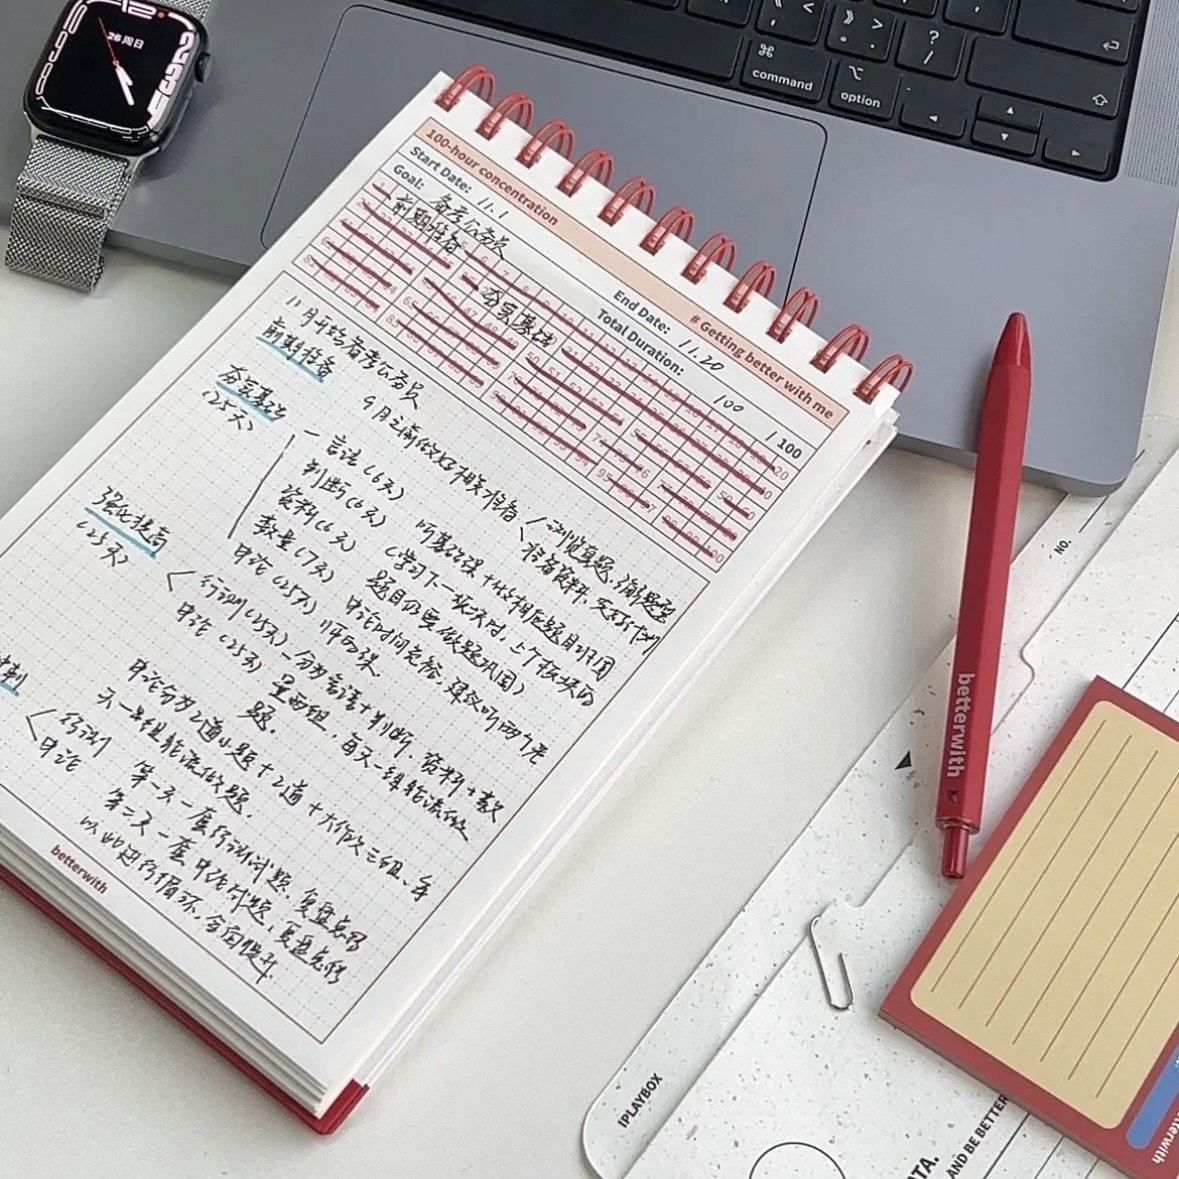 26 周日
command
option
100-hour concentration
# Getting better with me
Start Date: 11.1
End Date: 11.20
Goal: 备考公务员
Total Duration: 100 / 100
前期准备
夯实基础
11月开始备考公务员
前期准备
9月之前做好相关准备
浏览真题,了解题型
准备资料,
夯实基础
(25天)
言语(6天)
判断(6天)
资料(6天)
数量(7天)
申论(25天)
听基础课+做相应题目巩固
(学习下一板块时,上个板块的
题目仍要做题巩固)
申论时间充裕,建议听两个老
师的课.
强化提高
(25天)
行测(25天)-分为言语+判断,资料+数
量两组,每天一组轮流做
题.
申论(25天)
申论分为2道小题+2道+大作文三组,每
天一组轮流做题.
冲刺
行测
申论
第一天一套行测试题,复盘总结
第二天一套申论试题,复盘总结
以此进行循环,全面提升.
betterwith
betterwith
NO.
IPLAYBOX
DATA.
AND BE BETTER
betterwith